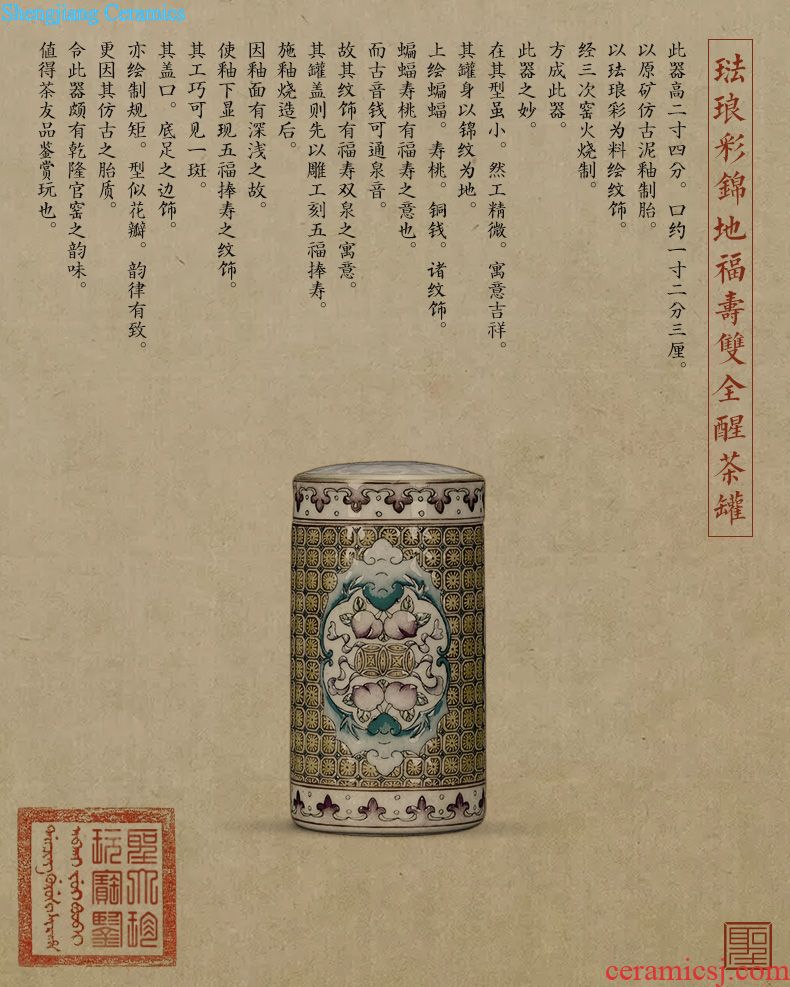 Shengjiang Ceramics
琺琅彩錦地福壽雙全醒茶罐
此器高二寸四分。口约一寸二分三厘。
以原矿仿古泥釉制胎。
以珐琅彩为料绘纹饰。
经三次窑火烧制。
方成此器。
此器之妙。
在其型虽小。然工精微。寓意吉祥。
其罐身以锦纹为地。
上绘蝙蝠。寿桃。铜钱。诸纹饰。
蝙蝠寿桃有福寿之意也。
而古音钱可通泉音。
故其纹饰有福寿双泉之寓意。
其罐盖则先以雕工刻五福捧寿。
施釉烧造后。
因釉面有深浅之故。
使釉下显现五福捧寿之纹饰。
其工巧可见一斑。
其盖口。底足之边饰。
亦绘制规矩。型似花瓣。韵律有致。
更因其仿古之胎质。
令此器颇有乾隆官窑之韵味。
值得茶友品鉴赏玩也。
聖
ceramicsj.com